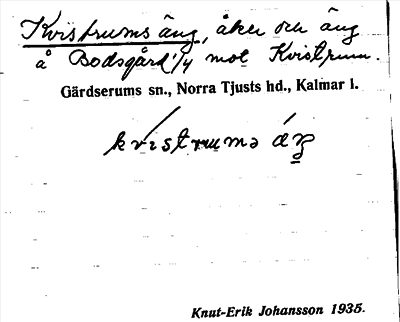 Kvistrums äng, åker och äng
å Bodsgård 1/4 mot Kvistrum.
Gärdserums sn., Norra Tjusts hd., Kalmar l.
Knut-Erik Johansson 1935.